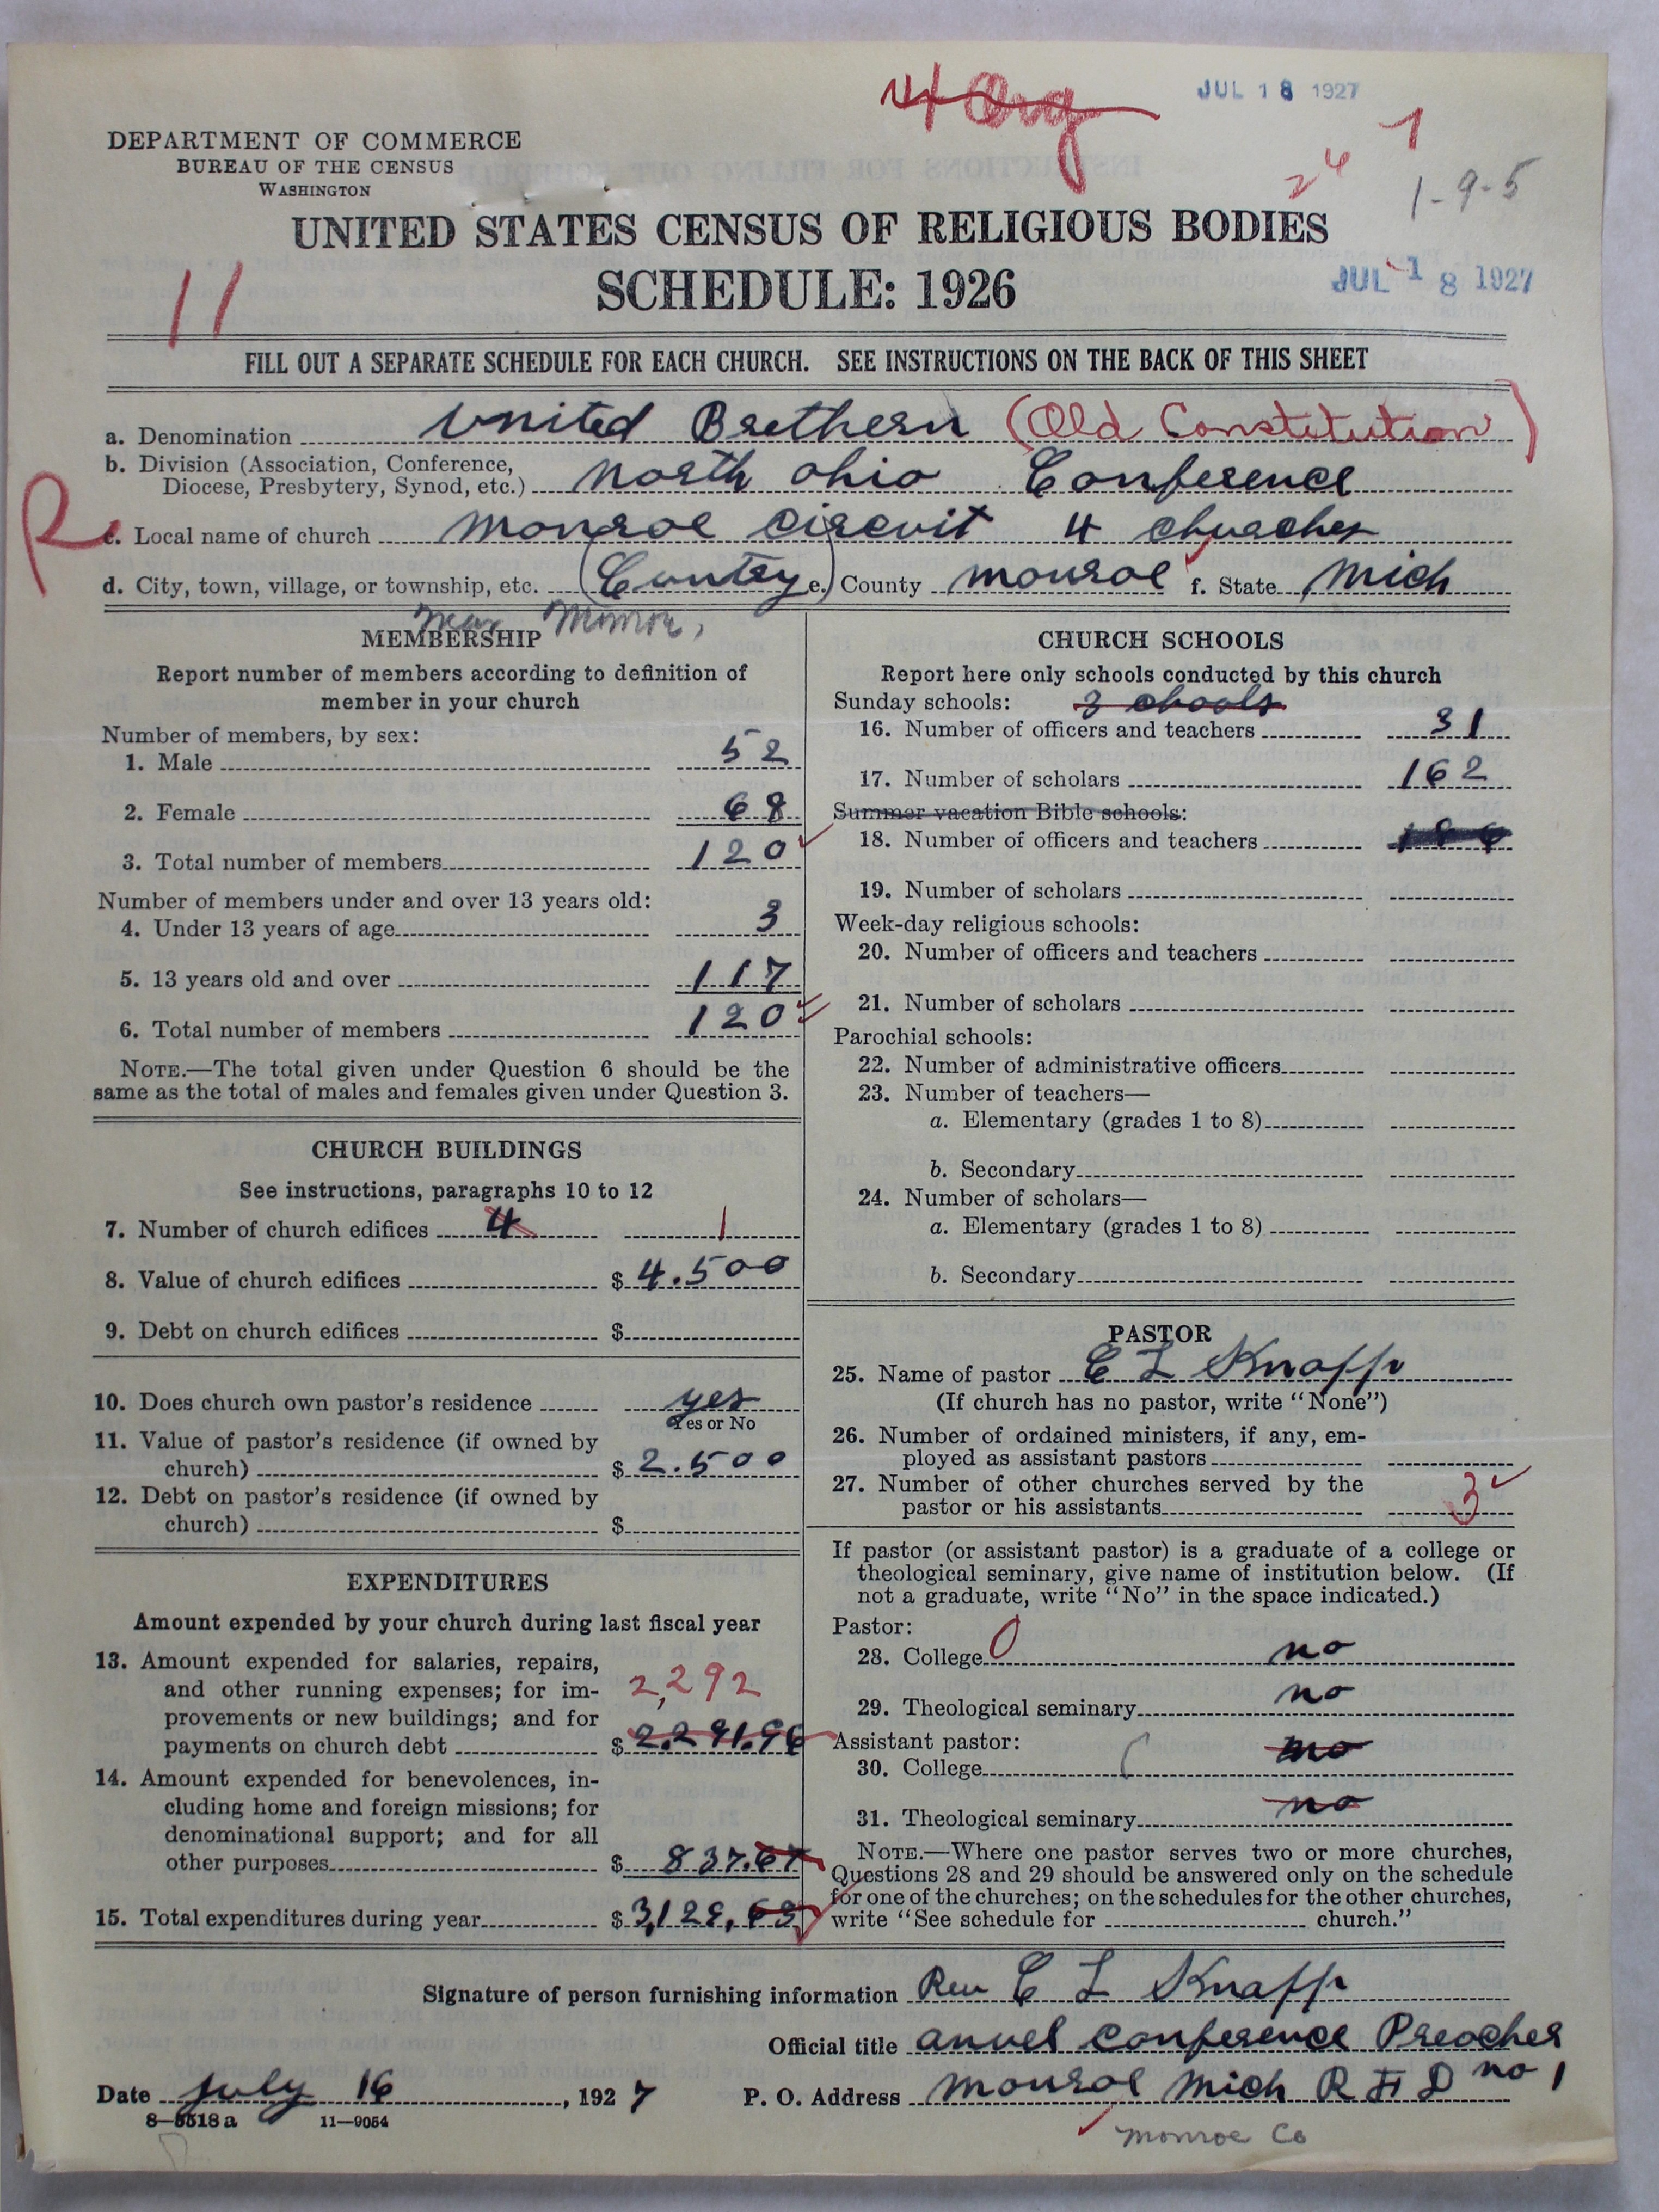 4 Org
JUL 18 1927
1
24
1-9-5
DEPARTMENT OF COMMERCE
BUREAU OF THE CENSUS
WASHINGTON
UNITED STATES CENSUS OF RELIGIOUS BODIES
SCHEDULE: 1926
JUL 18 1927
11
FILL OUT A SEPARATE SCHEDULE FOR EACH CHURCH. SEE INSTRUCTIONS ON THE BACK OF THIS SHEET
a. Denomination United Brethern (Old Constitution)
b. Division (Association, Conference,
Diocese, Presbytery, Synod, etc.) North Ohio Conference
R
c. Local name of church Monroe circuit 4 churches
d. City, town, village, or township, etc. (Country) e. County Monroe f. State Mich
Near Monroe,
MEMBERSHIP
Report number of members according to definition of
member in your church
Number of members, by sex:
1. Male 52
2. Female 68
3. Total number of members 120
Number of members under and over 13 years old:
4. Under 13 years of age 3
5. 13 years old and over 117
6. Total number of members 120
NOTE.—The total given under Question 6 should be the
same as the total of males and females given under Question 3.
CHURCH BUILDINGS
See instructions, paragraphs 10 to 12
7. Number of church edifices 4 1
8. Value of church edifices $ 4.500
9. Debt on church edifices $
10. Does church own pastor's residence yes
Yes or No
11. Value of pastor's residence (if owned by
church) $ 2.500
12. Debt on pastor's residence (if owned by
church) $
EXPENDITURES
Amount expended by your church during last fiscal year
13. Amount expended for salaries, repairs,
and other running expenses; for im-
2,292
provements or new buildings; and for
payments on church debt $ 2.291.96
14. Amount expended for benevolences, in-
cluding home and foreign missions; for
denominational support; and for all
other purposes $ 837.67
15. Total expenditures during year $ 3,129,63
CHURCH SCHOOLS
Report here only schools conducted by this church
Sunday schools: 3 chools
16. Number of officers and teachers 31
17. Number of scholars 162
Summer vacation Bible schools:
18. Number of officers and teachers
19. Number of scholars
Week-day religious schools:
20. Number of officers and teachers
21. Number of scholars
Parochial schools:
22. Number of administrative officers
23. Number of teachers—
a. Elementary (grades 1 to 8)
b. Secondary
24. Number of scholars—
a. Elementary (grades 1 to 8)
b. Secondary
PASTOR
25. Name of pastor C L Knapp
(If church has no pastor, write "None")
26. Number of ordained ministers, if any, em-
ployed as assistant pastors
27. Number of other churches served by the
pastor or his assistants 3
If pastor (or assistant pastor) is a graduate of a college or
theological seminary, give name of institution below. (If
not a graduate, write "No" in the space indicated.)
Pastor:
28. College 0 no
29. Theological seminary no
Assistant pastor:
30. College no
31. Theological seminary no
NOTE.—Where one pastor serves two or more churches,
Questions 28 and 29 should be answered only on the schedule
for one of the churches; on the schedules for the other churches,
write "See schedule for church."
Signature of person furnishing information Rev C L Knapp
Official title anuel conference Preacher
Date July 16, 1927 P. O. Address Monroe Mich R F D no 1
8-5518 a 11-9054
Monroe Co